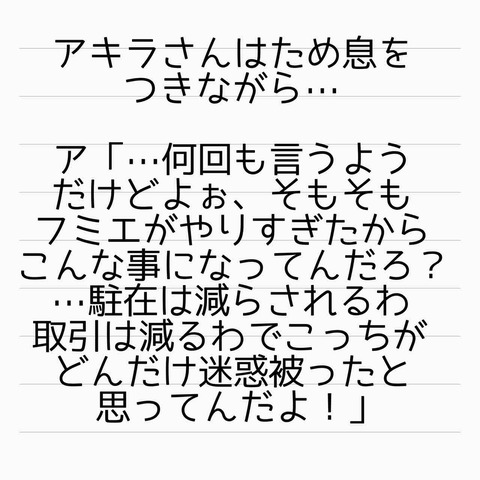 アキラさんはため息を
つきながら…
ア「…何回も言うよう
だけどよぉ、そもそも
フミエがやりすぎたから
こんな事になってんだろ？
…駐在は減らされるわ
取引は減るわでこっちが
どんだけ迷惑被ったと
思ってんだよ！」